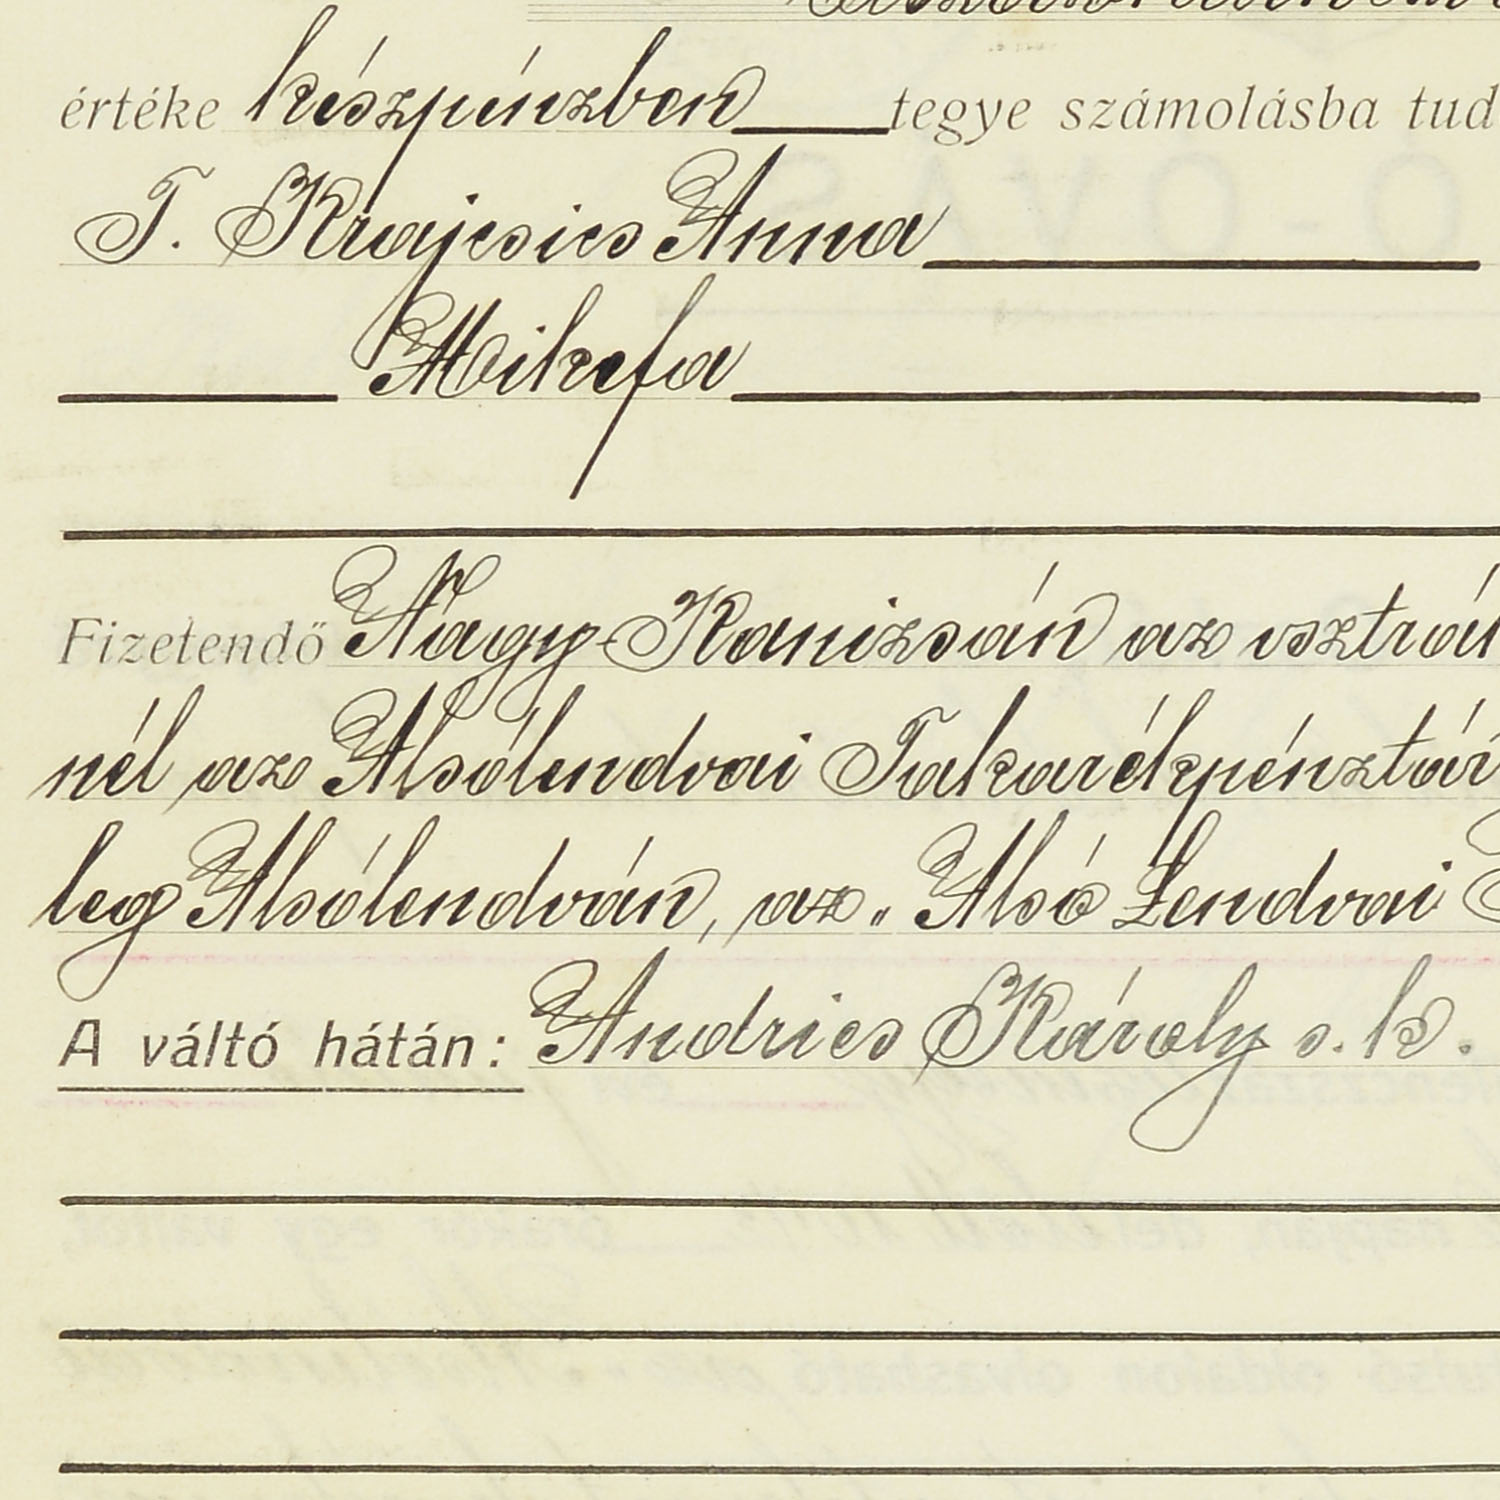 értéke készpénzben tegye számolásba tud
T. Krajcsics Anna
Mikefa
Fizetendő Nagy-Kanizsán az osztrák
nél az Alsólendvai Takarékpénztár
leg Alsólendván, az „Alsó Lendvai
A váltó hátán: Andrics Károly s. k.